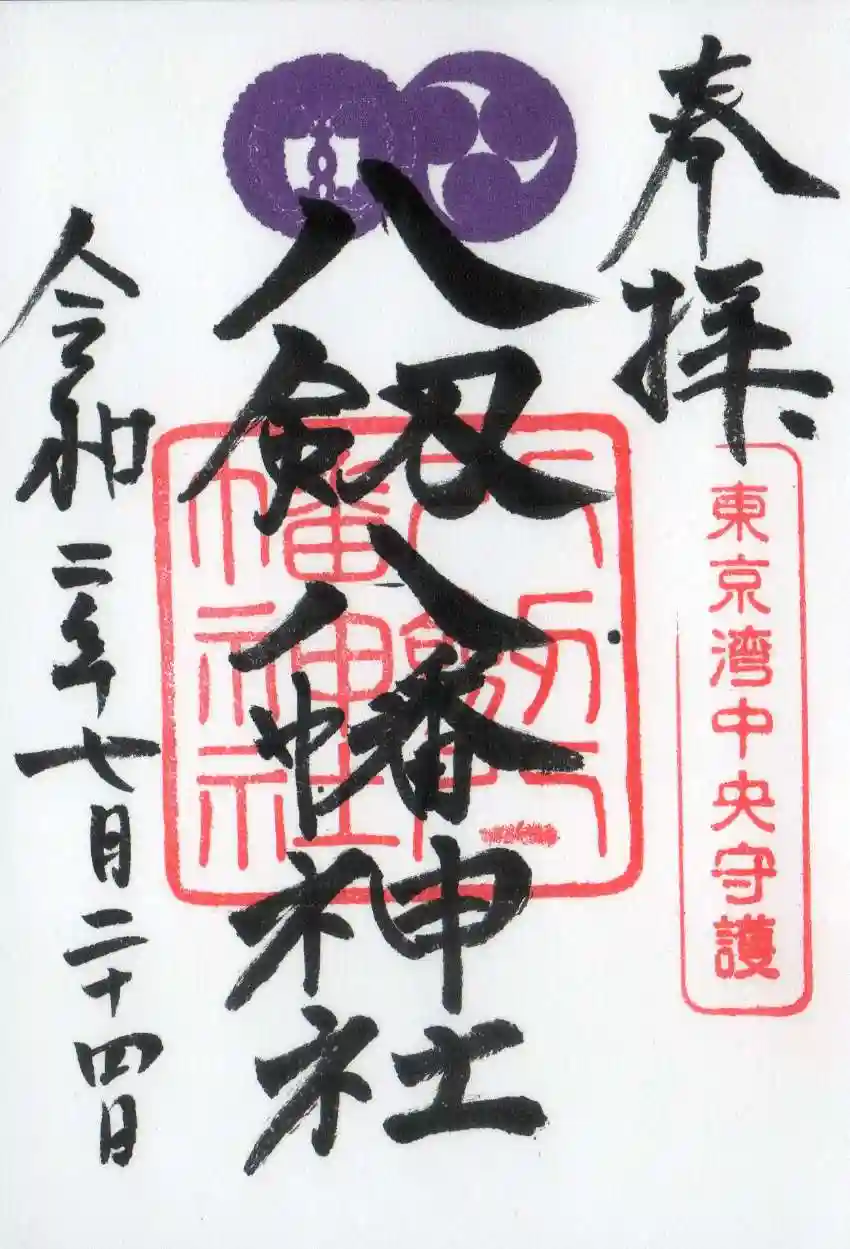 奉拝
東京湾中央守護
八剱八幡神社
八剱八幡神社
令和二年七月二十四日